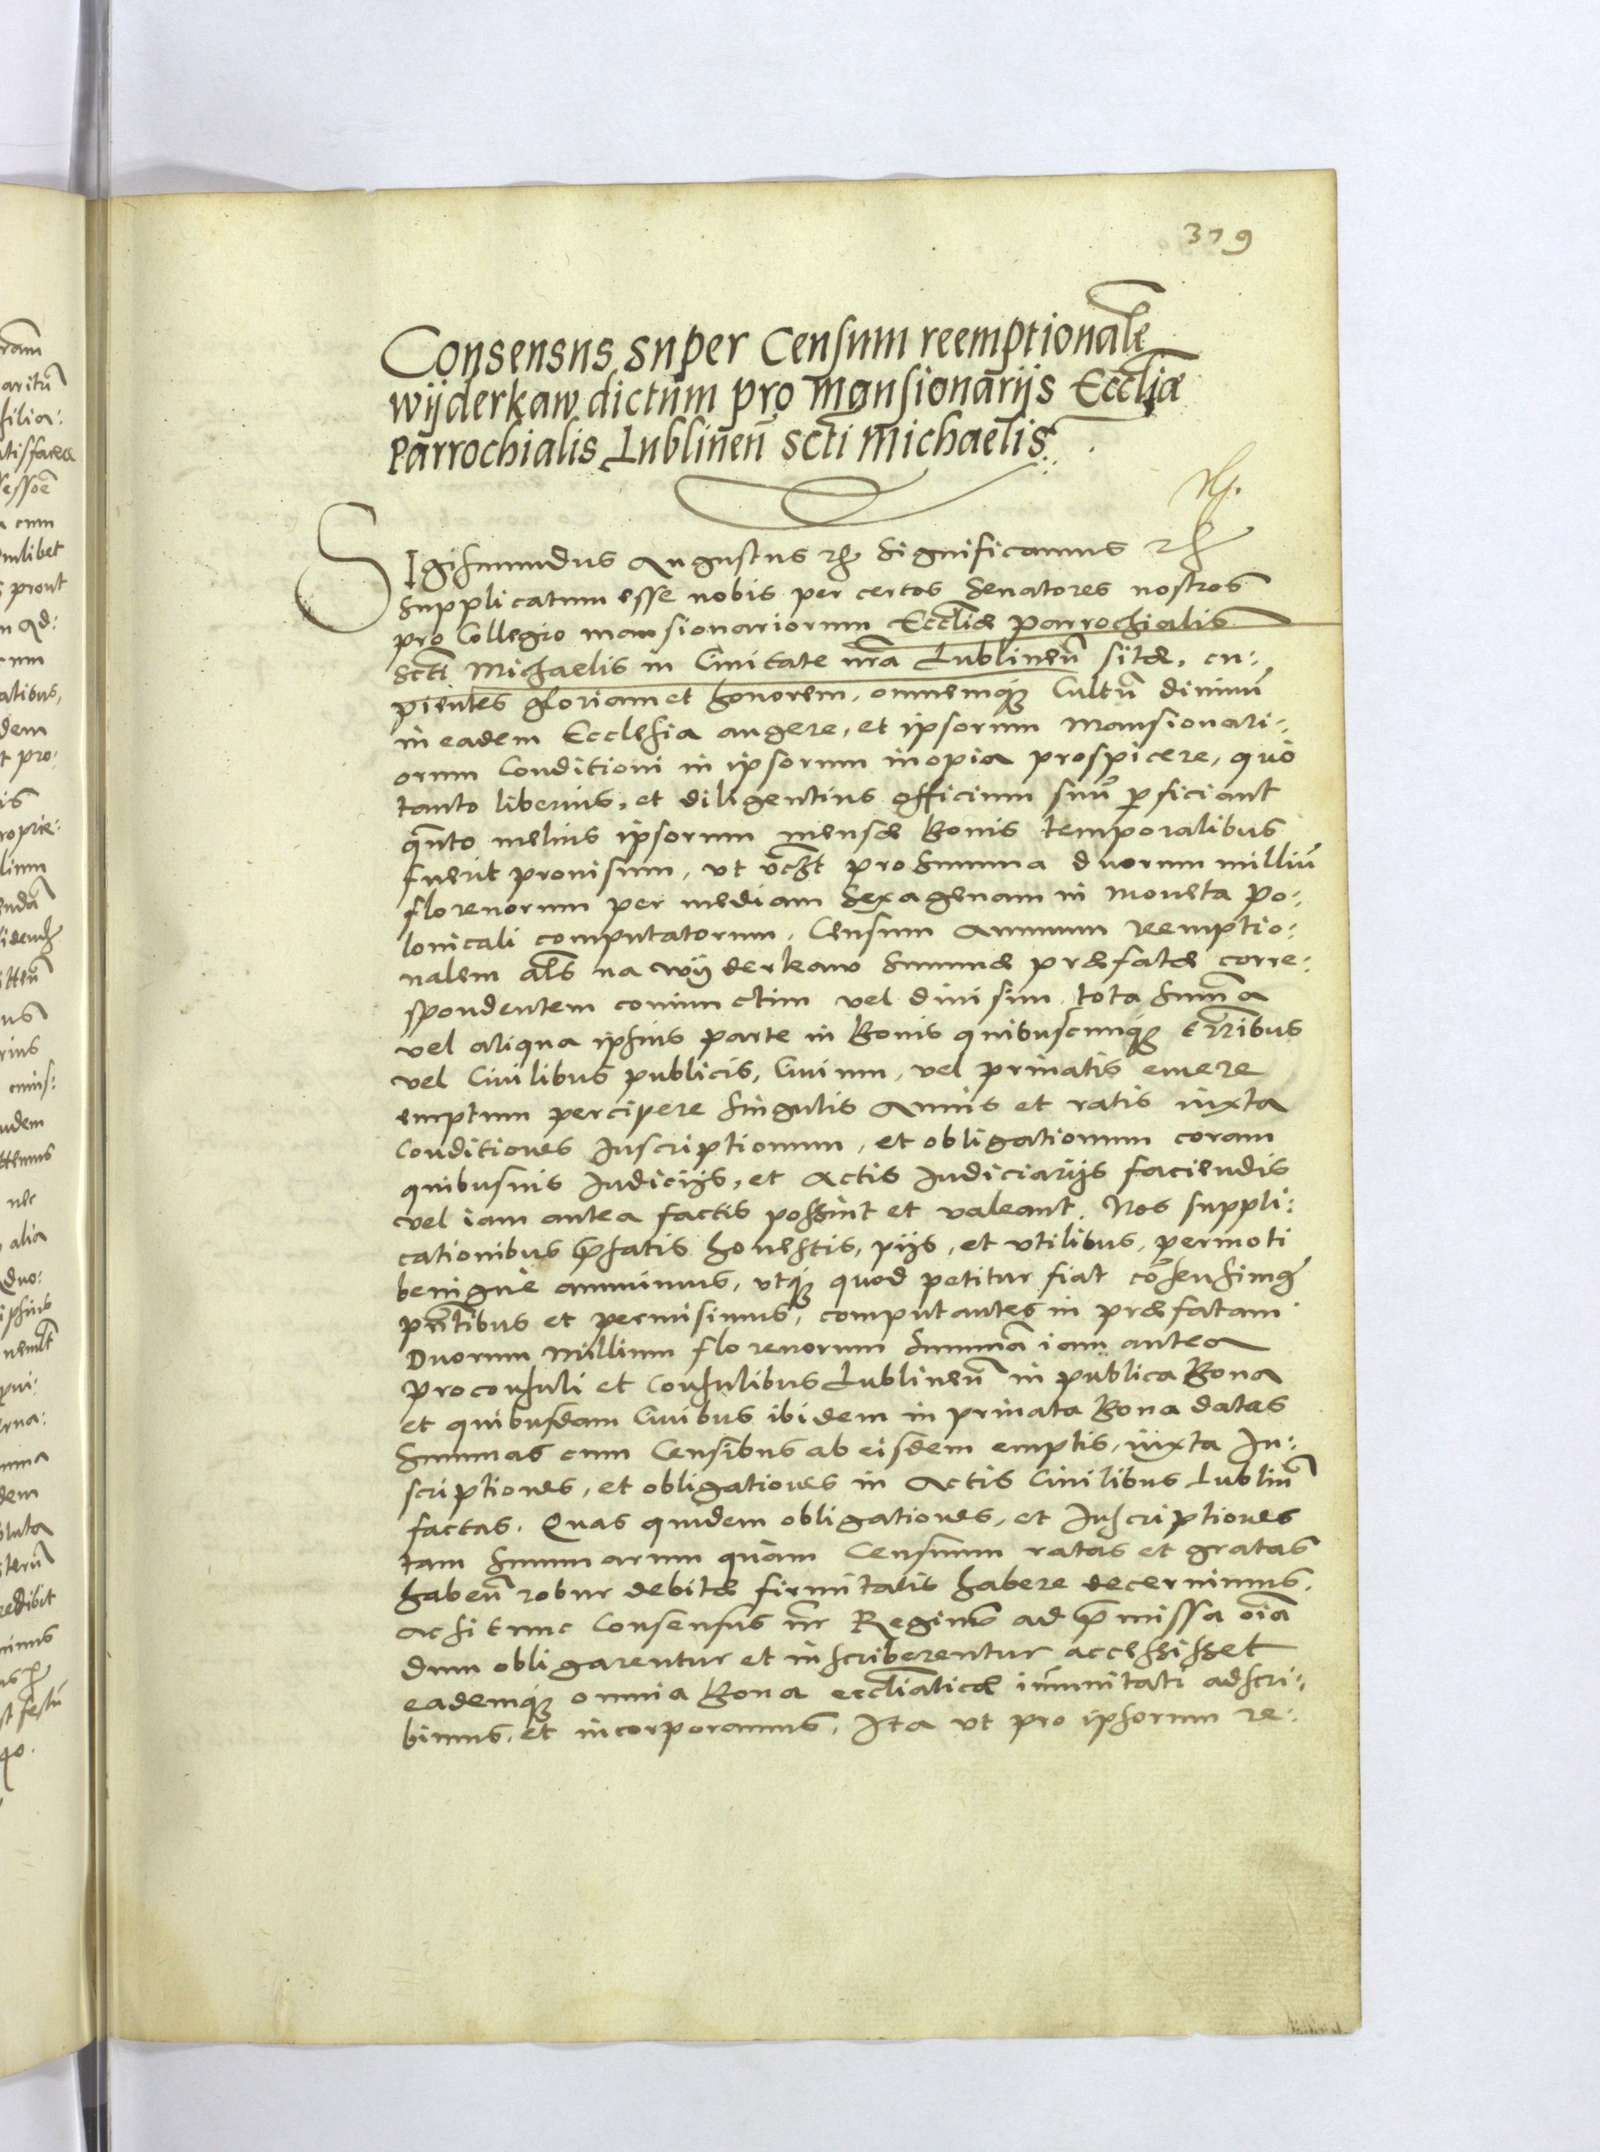 379
Consensus super Censum reemptionale
wijderkaw dictum pro mansionarijs Eccliæ
Parrochialis Lublineñ Scti Michaelis.
Sigismundus Augustus &c Significamus &c
Supplicatum esse nobis per certos Senatores nostros
pro Collegio mansionariorum Eccliæ parrochialis
Scti Michaelis in Civitate nra Lublineñ sitæ, cu:
pientes gloriam et honorem, omnemq; Cultũ divinũ
in eadem Ecclesia augere, et ipsorum Mansionari:
orum Conditioni in ipsorum inopia prospicere, quò
tanto liberius, et diligentius officium suũ pficiant
qnto melius ipsorum mensæ Bonis temporalibus
fuerit provisum, ut vcz pro Summa duorum milliũ
florenorum per mediam Sexagenam in moneta Po:
lonicali computatorum, Censum Annuum reemptio:
nalem als na wyderkaw Summæ præfatæ corre:
spondentem coniunctim vel divisim tota Suma
vel aliqua ipsius parte in Bonis quibuscunq; trribus
vel Civilibus publicis, Civium, vel privatis emere
emptum percipere Singulis Annis et ratis iuxta
Conditiones Inscriptionum, et obligationum coram
quibusvis Iudicijs, et Actis Iudiciarijs faciendis
vel iam antea factis possint et valeant. Nos suppli:
cationibus pfatis honestis, pijs, et utilibus, permoti
benignè annuimus, utq; quod petitur fiat cõsensimq
pntibus et permisimus, computantes in præfatam
Duorum Millium florenorum Summã iam antea
proconsuli et Consulibus Lublineñ in publica Bona
et quibusdam Civibus ibidem in privata Bona datas
Summas cum Censibus ab eisdem emptis, iuxta In:
scriptiones, et obligationes in Actis Civilibus Lubliñ
factas. Quas quidem obligationes, et Inscriptiones
tam Summarum quàm Censuum ratas et gratas
habeñ robur debitæ firmitatis habere decernimus,
Acsi tunc Consensus nr Regius ad pmissa oia
dum obligarentur et inscriberentur accessisset
eademq; omnia Bona eccliaticæ imunitati adscri:
bimus, et incorporamus. Ita ut pro ipsorum re: